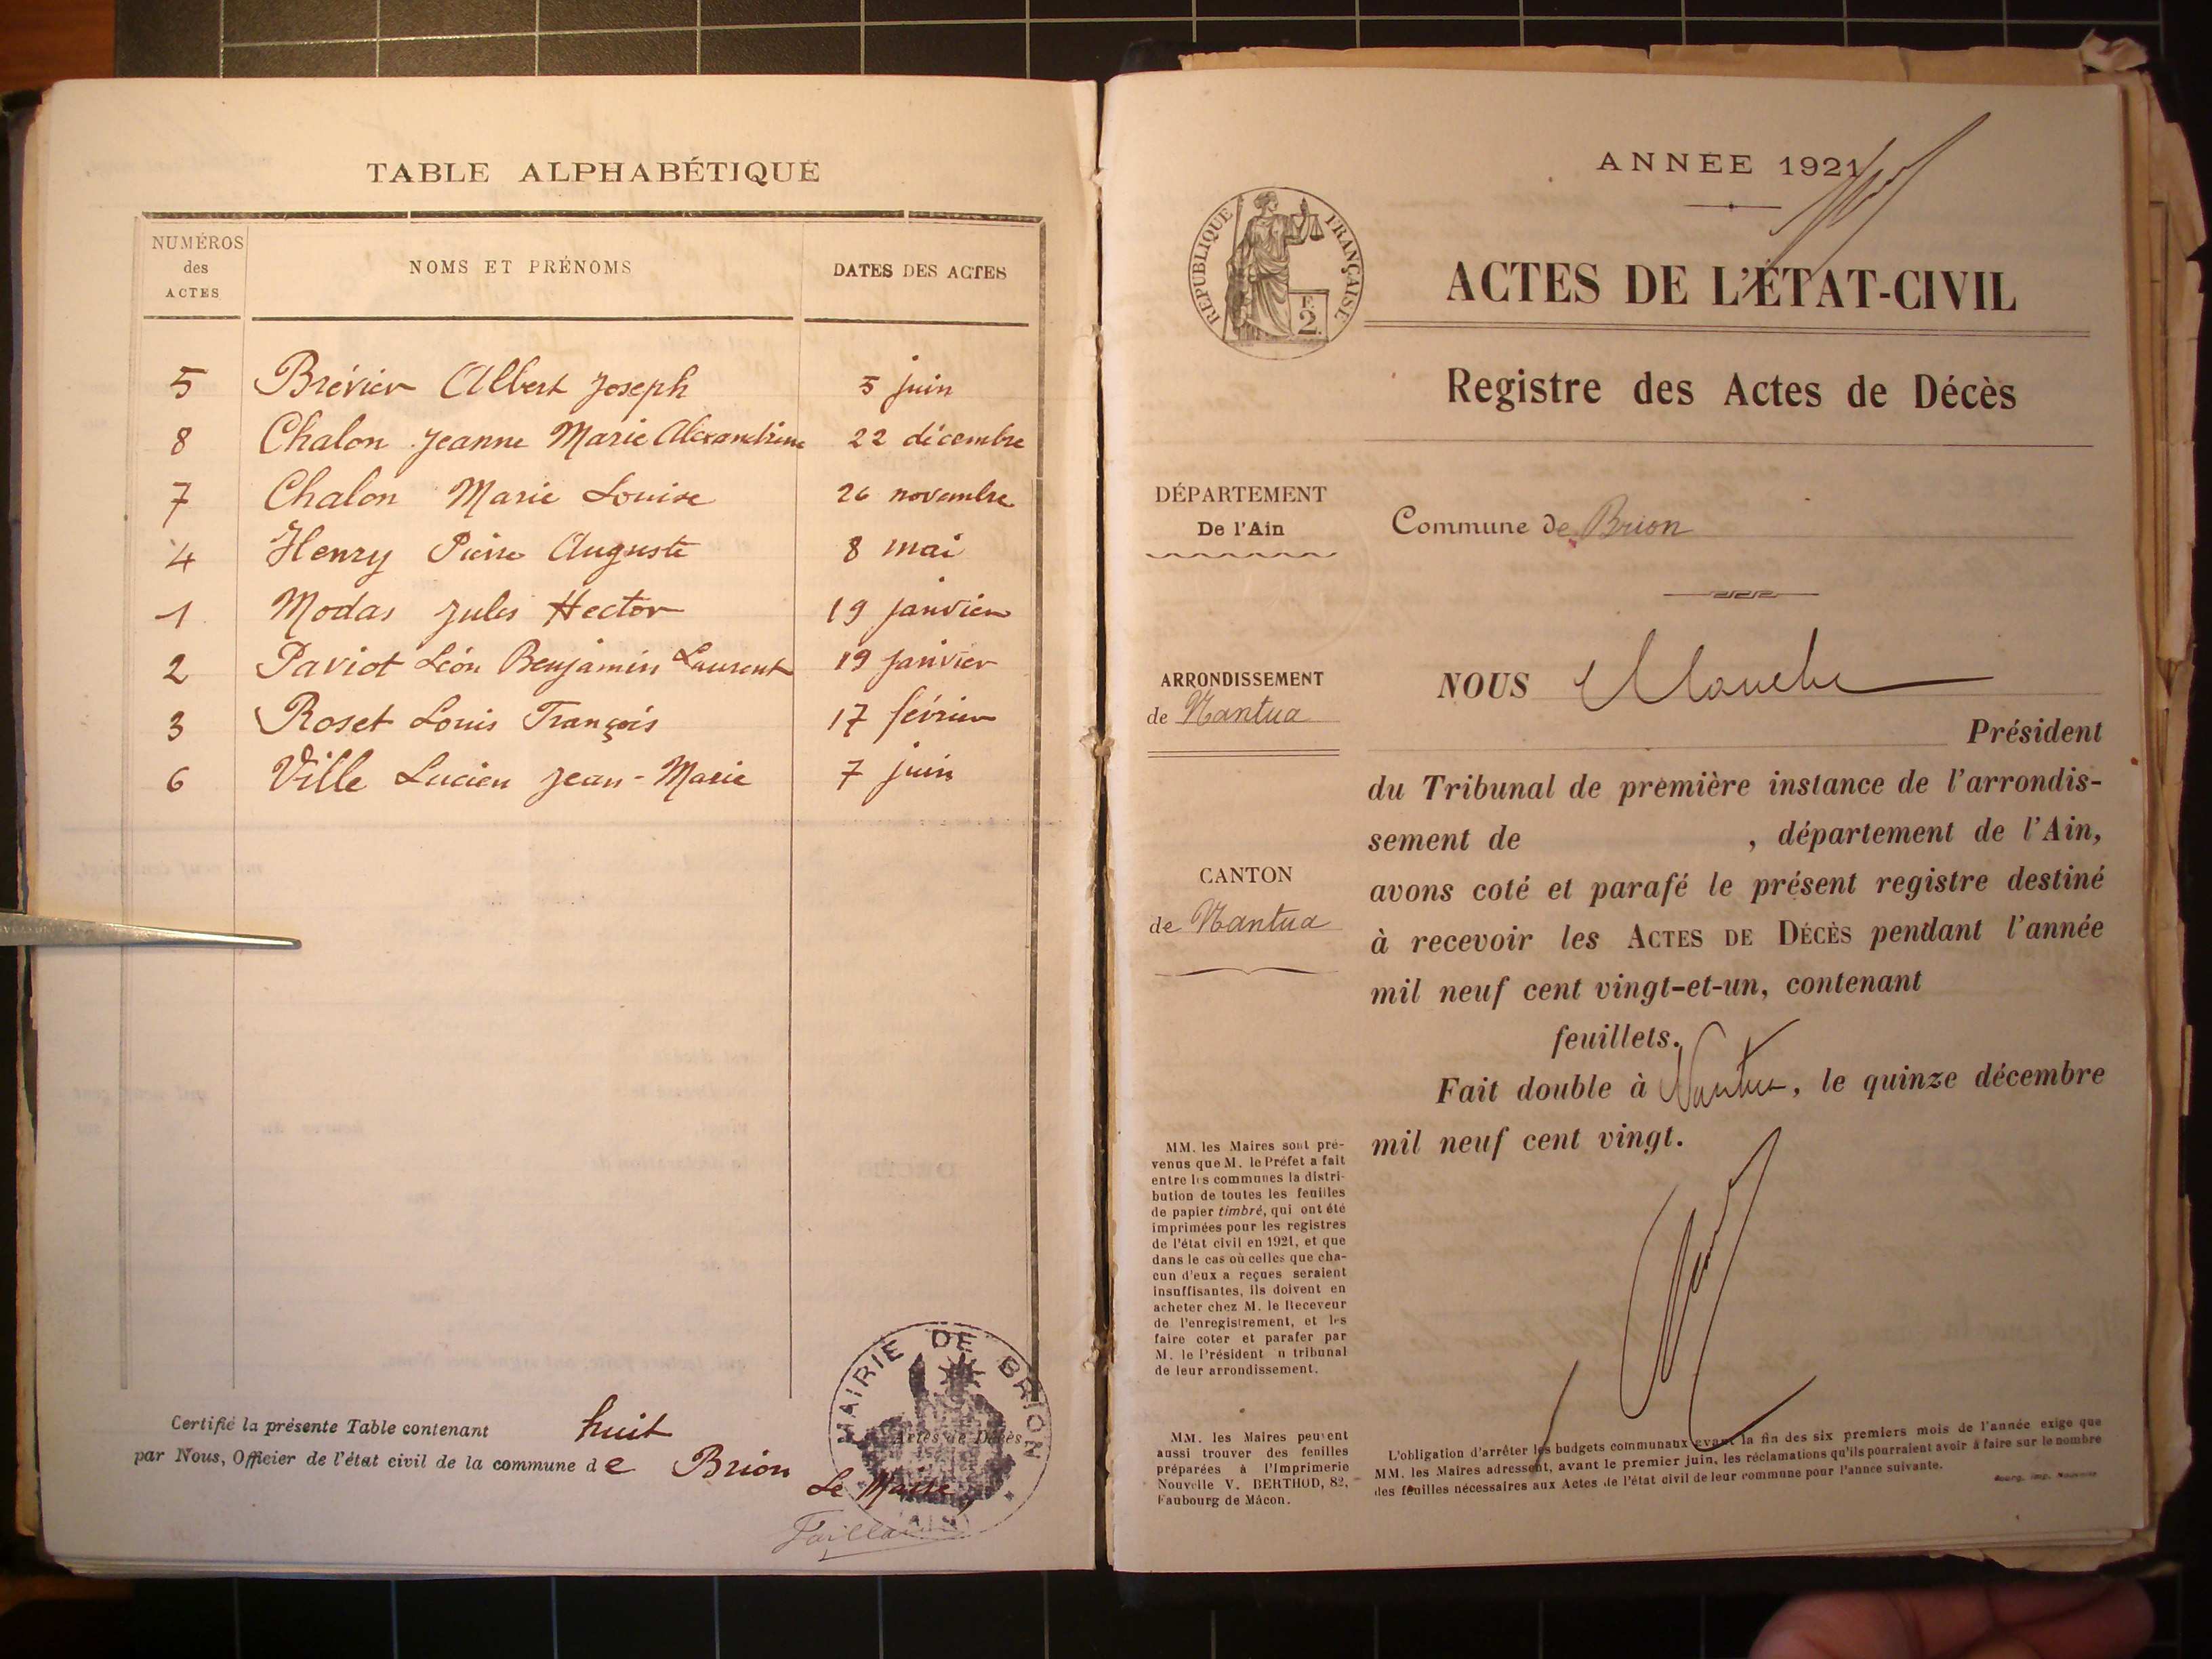 TABLE ALPHABÉTIQUE
NUMÉROS
des
ACTES
NOMS ET PRÉNOMS
DATES DES ACTES
5 Brévier Albert Joseph 5 juin
8 Chalon Jeanne Marie Alexandrine 22 décembre
7 Chalon Marie Louise 26 novembre
4 Henry Pierre Auguste 8 mai
1 Modas Jules Hector 19 janvier
2 Paviot Léon Benjamin Laurent 19 janvier
3 Roset Louis François 17 février
6 Ville Lucien Jean-Marie 7 juin
Certifié la présente Table contenant huit Actes de Décès
par Nous, Officier de l'état civil de la commune de Brion
Le Maire,
MAIRIE DE BRION
(AIN)
ANNÉE 1921
RÉPUBLIQUE FRANÇAISE
2
ACTES DE L'ÉTAT-CIVIL
Registre des Actes de Décès
DÉPARTEMENT
De l'Ain
Commune de Brion
ARRONDISSEMENT
de Nantua
CANTON
de Nantua
NOUS
Président
du Tribunal de première instance de l'arrondis-
sement de , département de l'Ain,
avons coté et parafé le présent registre destiné
à recevoir les ACTES DE DÉCÈS pendant l'année
mil neuf cent vingt-et-un, contenant
feuillets.
Fait double à Nantua, le quinze décembre
mil neuf cent vingt.
MM. les Maires sont pré-
venus que M. le Préfet a fait
entre les communes la distri-
bution de toutes les feuilles
de papier timbré, qui ont été
imprimées pour les registres
de l'état civil en 1921, et que
dans le cas où celles que cha-
cun d'eux a reçues seraient
insuffisantes, ils doivent en
acheter chez M. le Receveur
de l'enregistrement, et les
faire coter et parafer par
M. le Président n tribunal
de leur arrondissement.
MM. les Maires peuvent
aussi trouver des feuilles
préparées à l'Imprimerie
Nouvelle V. BERTHOD, 82,
Faubourg de Mâcon.
L'obligation d'arrêter les budgets communaux avant la fin des six premiers mois de l'année exige que
MM. les Maires adressent, avant le premier juin, les réclamations qu'ils pourraient avoir à faire sur le nombre
des feuilles nécessaires aux Actes de l'état civil de leur commune pour l'année suivante.
Bourg, Imp. Nouvelle